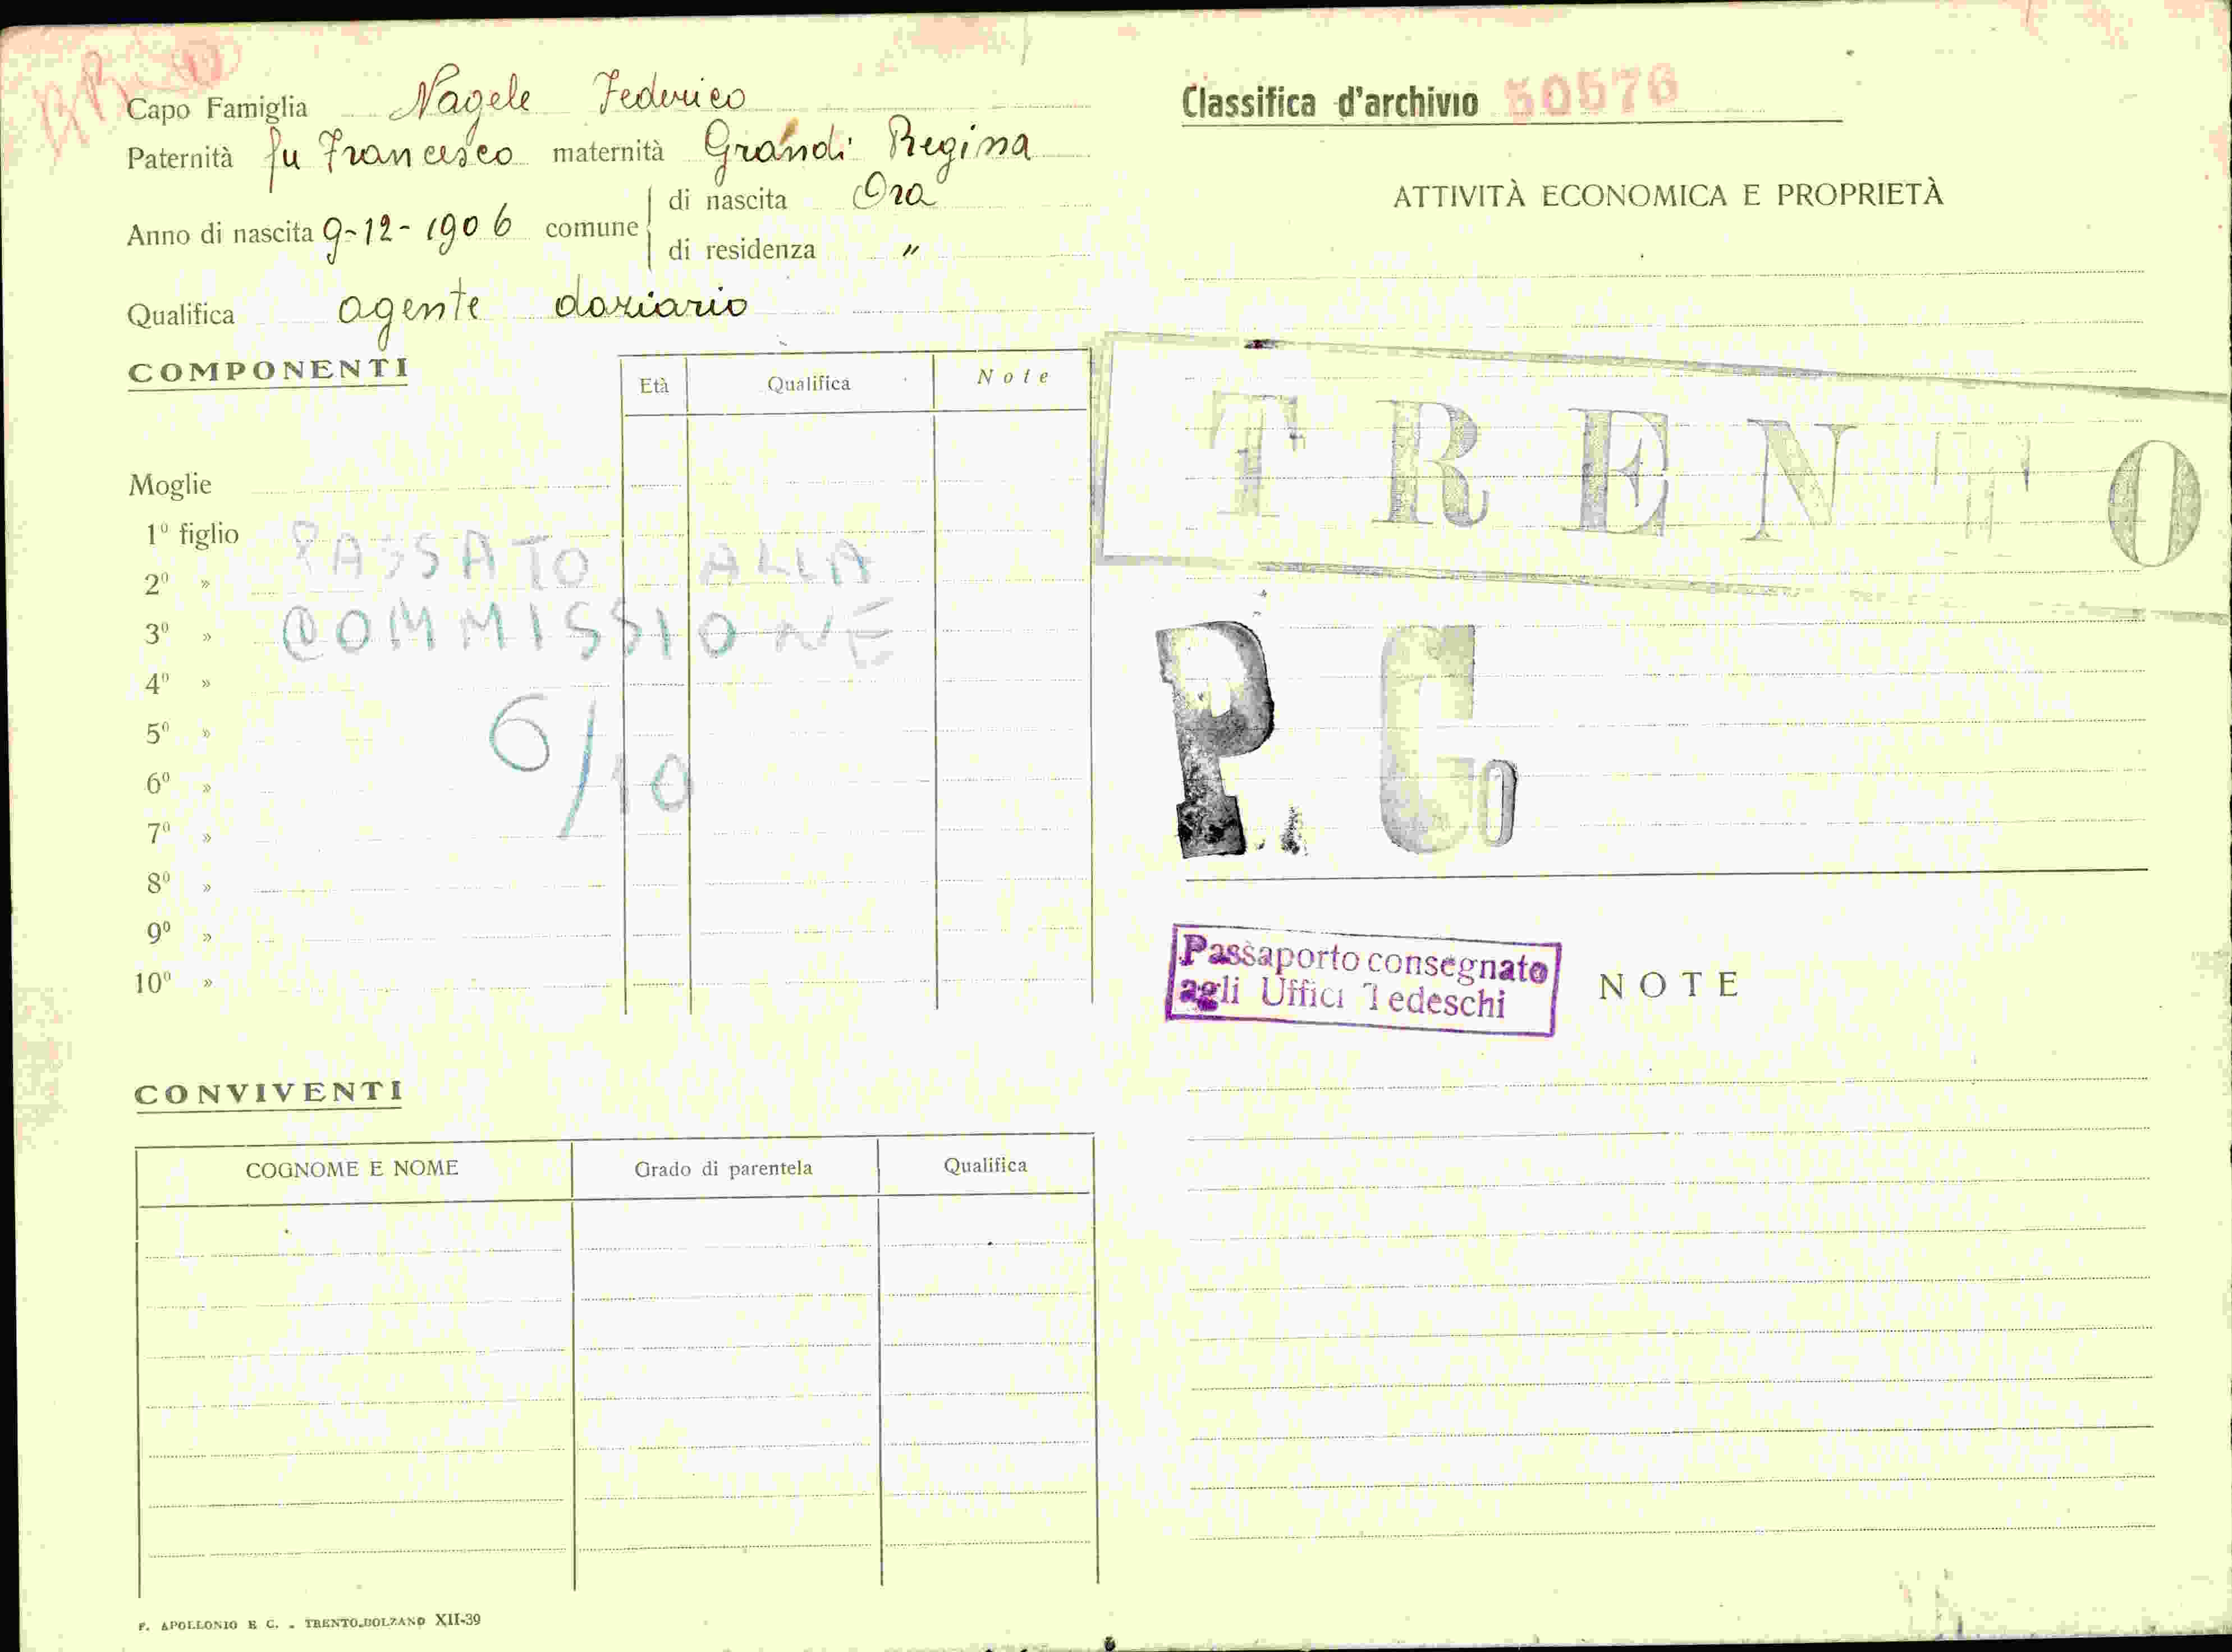 Capo Famiglia Nagele Federico
Paternità fu Francesco maternità Grandi Regina
Anno di nascita 9-12-1906 comune di nascita Ora
di residenza "
Qualifica agente daziario
COMPONENTI
Età Qualifica Note
Moglie
1º figlio
2º »
3º »
4º »
5º »
6º »
7º »
8º »
9º »
10º »
PASSATO ALLA
COMMISSIONE
6/10
CONVIVENTI
COGNOME E NOME Grado di parentela Qualifica
F. APOLLONIO E C. - TRENTO-BOLZANO XII-39
Classifica d'archivio 50576
ATTIVITÀ ECONOMICA E PROPRIETÀ
TRENTO
P. C.
Passaporto consegnato
agli Uffici Tedeschi
NOTE